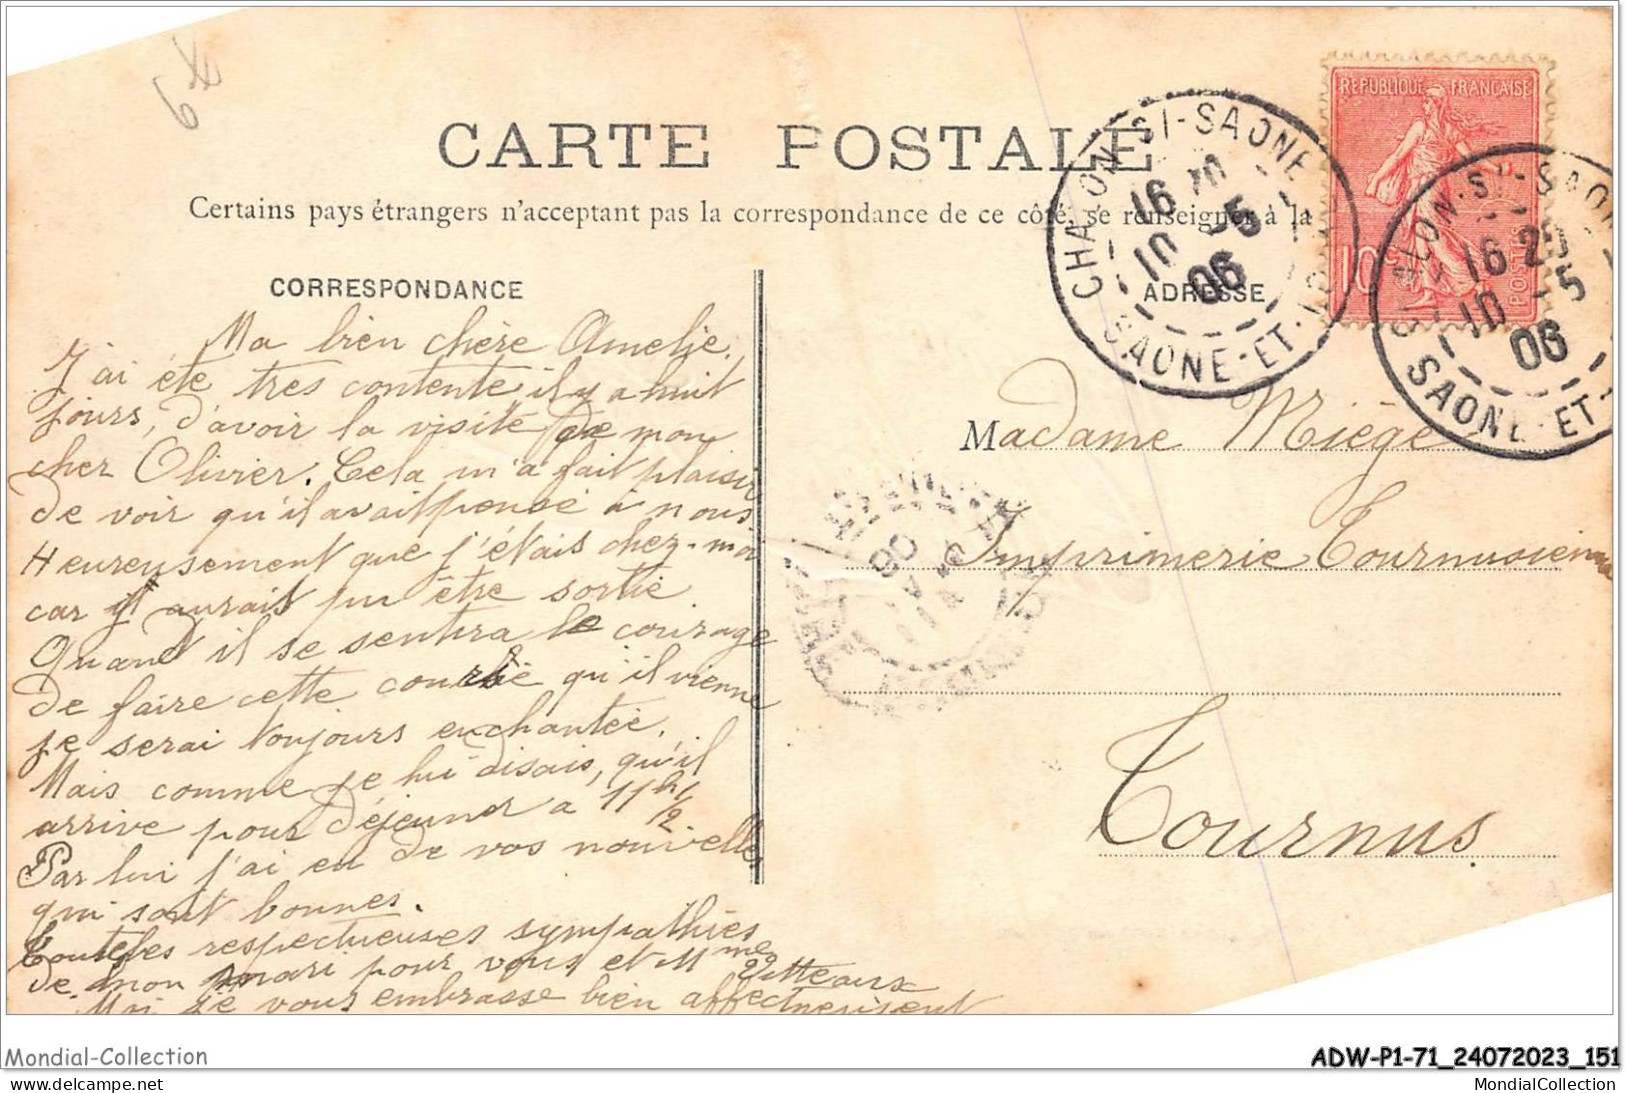 6x
CARTE POSTALE
Certains pays étrangers n'acceptant pas la correspondance de ce côté, se renseigner à la
CORRESPONDANCE
ADRESSE
REPUBLIQUE FRANÇAISE
10c
POSTES
CHALON-S/-SAONE
16 20
10 -5
06
SAONE-ET-
CHALON-S/-SAONE
16 20
10 -5
06
SAONE-ET-
Ma bien chère Amelie,
J'ai été très contente, il y a huit
jours, d'avoir la visite de mon
cher Olivier. Cela m'a fait plaisir
de voir qu'il avait pensé à nous.
Heureusement que j'étais chez-moi
car il aurait pu être sortie.
Quand il se sentira le courage
de faire cette course qu'il vienne
je serai toujours enchantée.
Mais comme je lui disais, qu'il
arrive pour déjeuner à 11h 1/2
Par lui j'ai eu de vos nouvelles
qui sont bonnes.
Toutes les respectueuses sympathies
de mon mari pour vous et Mme Vitteaux
Moi je vous embrasse bien affectueusement
Madame Miège
Imprimerie Tournusienne
Tournus
Mondial-Collection
ADW-P1-71_24072023_151
delcampe.net
MondialCollection